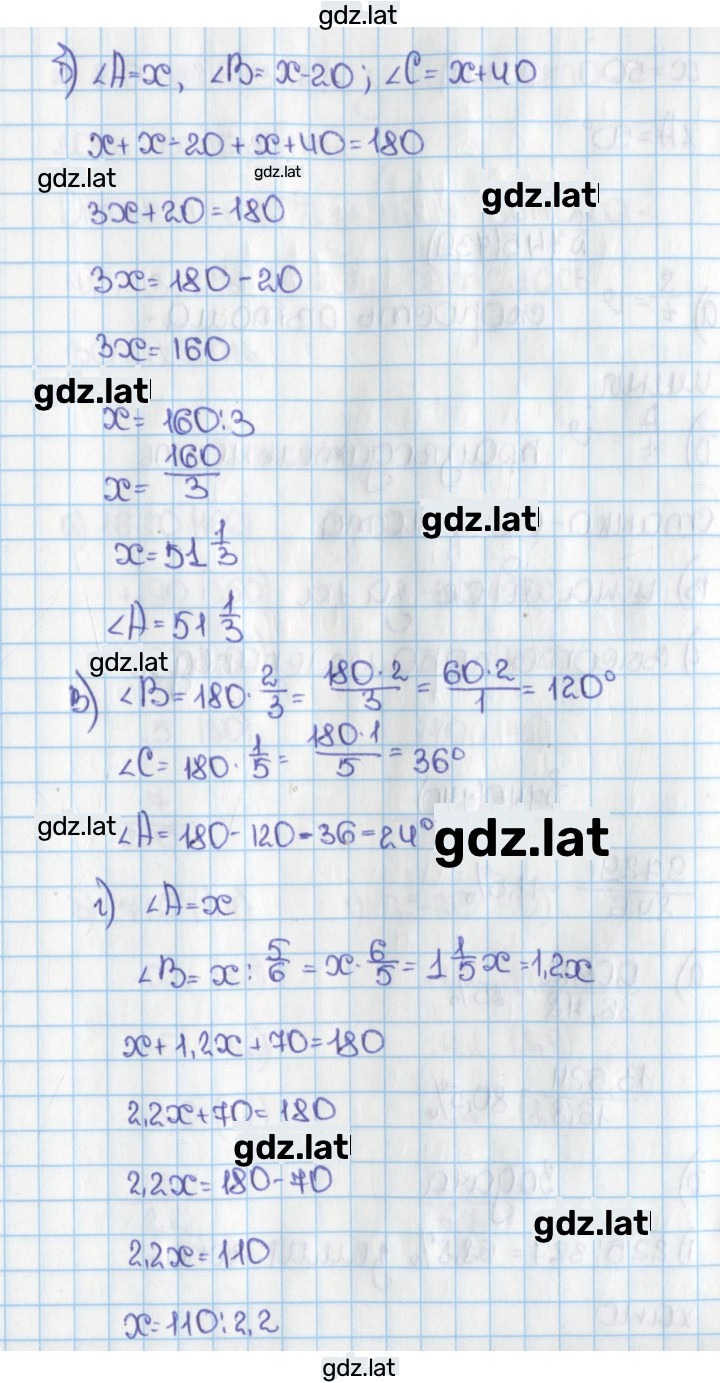 gdz.lat
б) ∠A=x, ∠B= x-20; ∠C= x+40
x+ x-20 + x+40=180
gdz.lat gdz.lat gdz.lat
3x+20=180
3x= 180-20
3x= 160
gdz.lat
x= 160:3
x= 160/3
gdz.lat
x=51 1/3
∠A=51 1/3
gdz.lat
в) ∠B=180·2/3= 180·2/3 = 60·2/1 = 120°
∠C= 180·1/5= 180·1/5 = 36°
gdz.lat ∠A=180-120-36=24° gdz.lat
г) ∠A=x
∠B= x:5/6 = x·6/5= 1 1/5 x=1,2x
x+1,2x+70=180
2,2x+70=180
gdz.lat
2,2x=180-70
gdz.lat
2,2x=110
x=110:2,2
gdz.lat